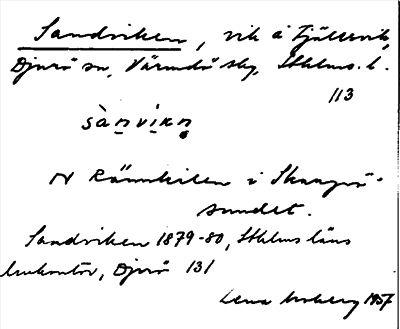 Sandviken, vik å Fjällsvik,
Djurö sn, Värmdö skg, Sthlms. l.
113
sànvikn̥
N Rännkilen i Skaorpö-
sundet.
Sandviken 1879-80, Sthlms läns
lmkontor, Djurö 131
Lena Moberg 1957